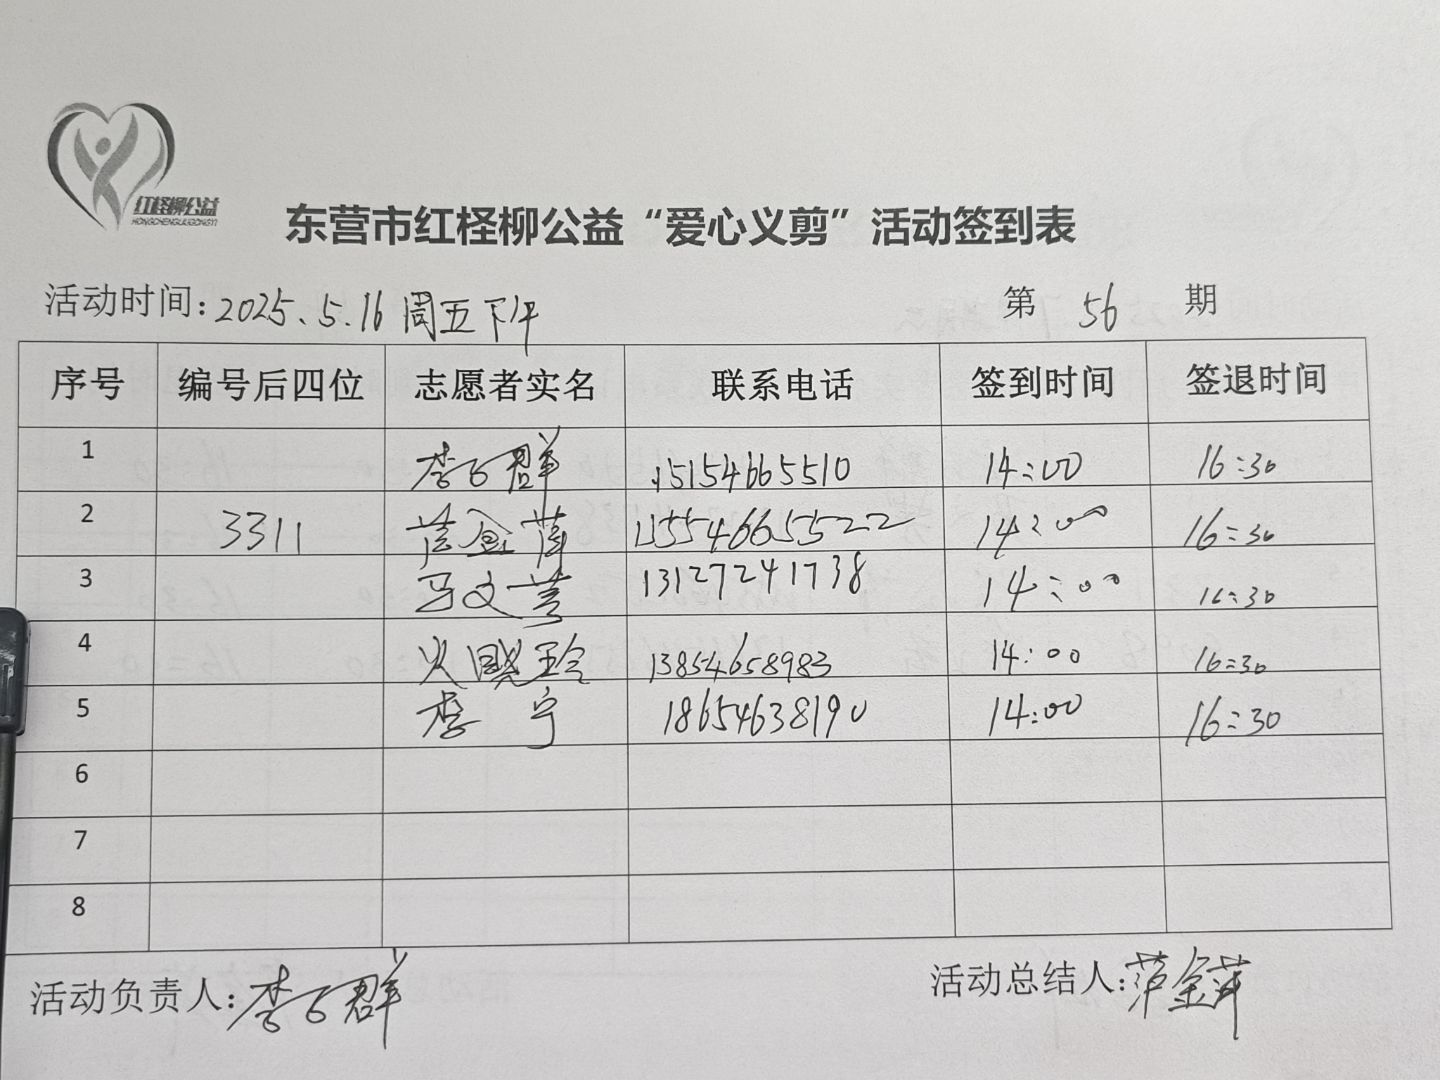 红柽柳公益
HONGCHENGLIUGONGYI
东营市红柽柳公益“爱心义剪”活动签到表
活动时间:2025.5.16 周五下午 第 56 期
序号 编号后四位 志愿者实名 联系电话 签到时间 签退时间
1 李 群 15154665510 14:00 16:30
2 3311 金萍 15554665522 14:00 16:30
3 马文 13127241738 14:00 16:30
4 晓玲 13854658983 14:00 16:30
5 李宁 18654638190 14:00 16:30
6
7
8
活动负责人:李 群 活动总结人: 金萍